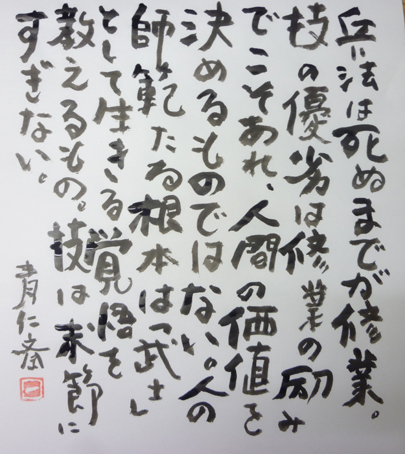 兵法は死ぬまでが修業。
技の優劣は修業の励み
でこそあれ、人間の価値を
決めるものではない。人の
師範たる根本は「武士」
として生きる覚悟を
教えるもの。技は末節に
すぎない。
青仁斎